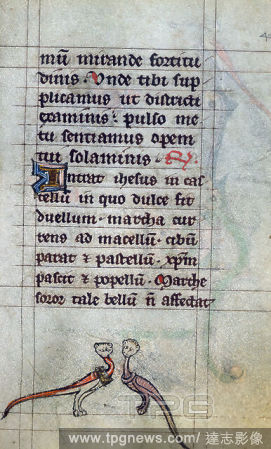 mū mirande fortitu
dinis. Unde tibi sup
plicamus ut districti
examinis: pulso me
tu sentiamus opem
tui solaminis.
Intrat ihesus in cas
tellū in quo dulce fit
duellum. marcha cur
rens ad macellū. cibū
parat & pastellū. xp̄m
pascit & popellū. Marthe
soror tale bellū n̄ affectat
TPG
www.tpgnews.com/ 達志影像